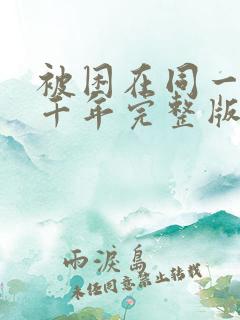 被困在同一
千年完整版
雨淚島
未经同意禁止转载